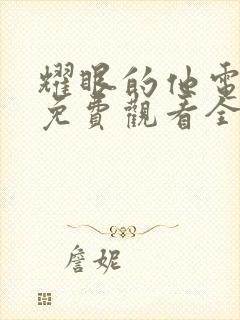 耀眼的他電
免費觀看全
詹妮